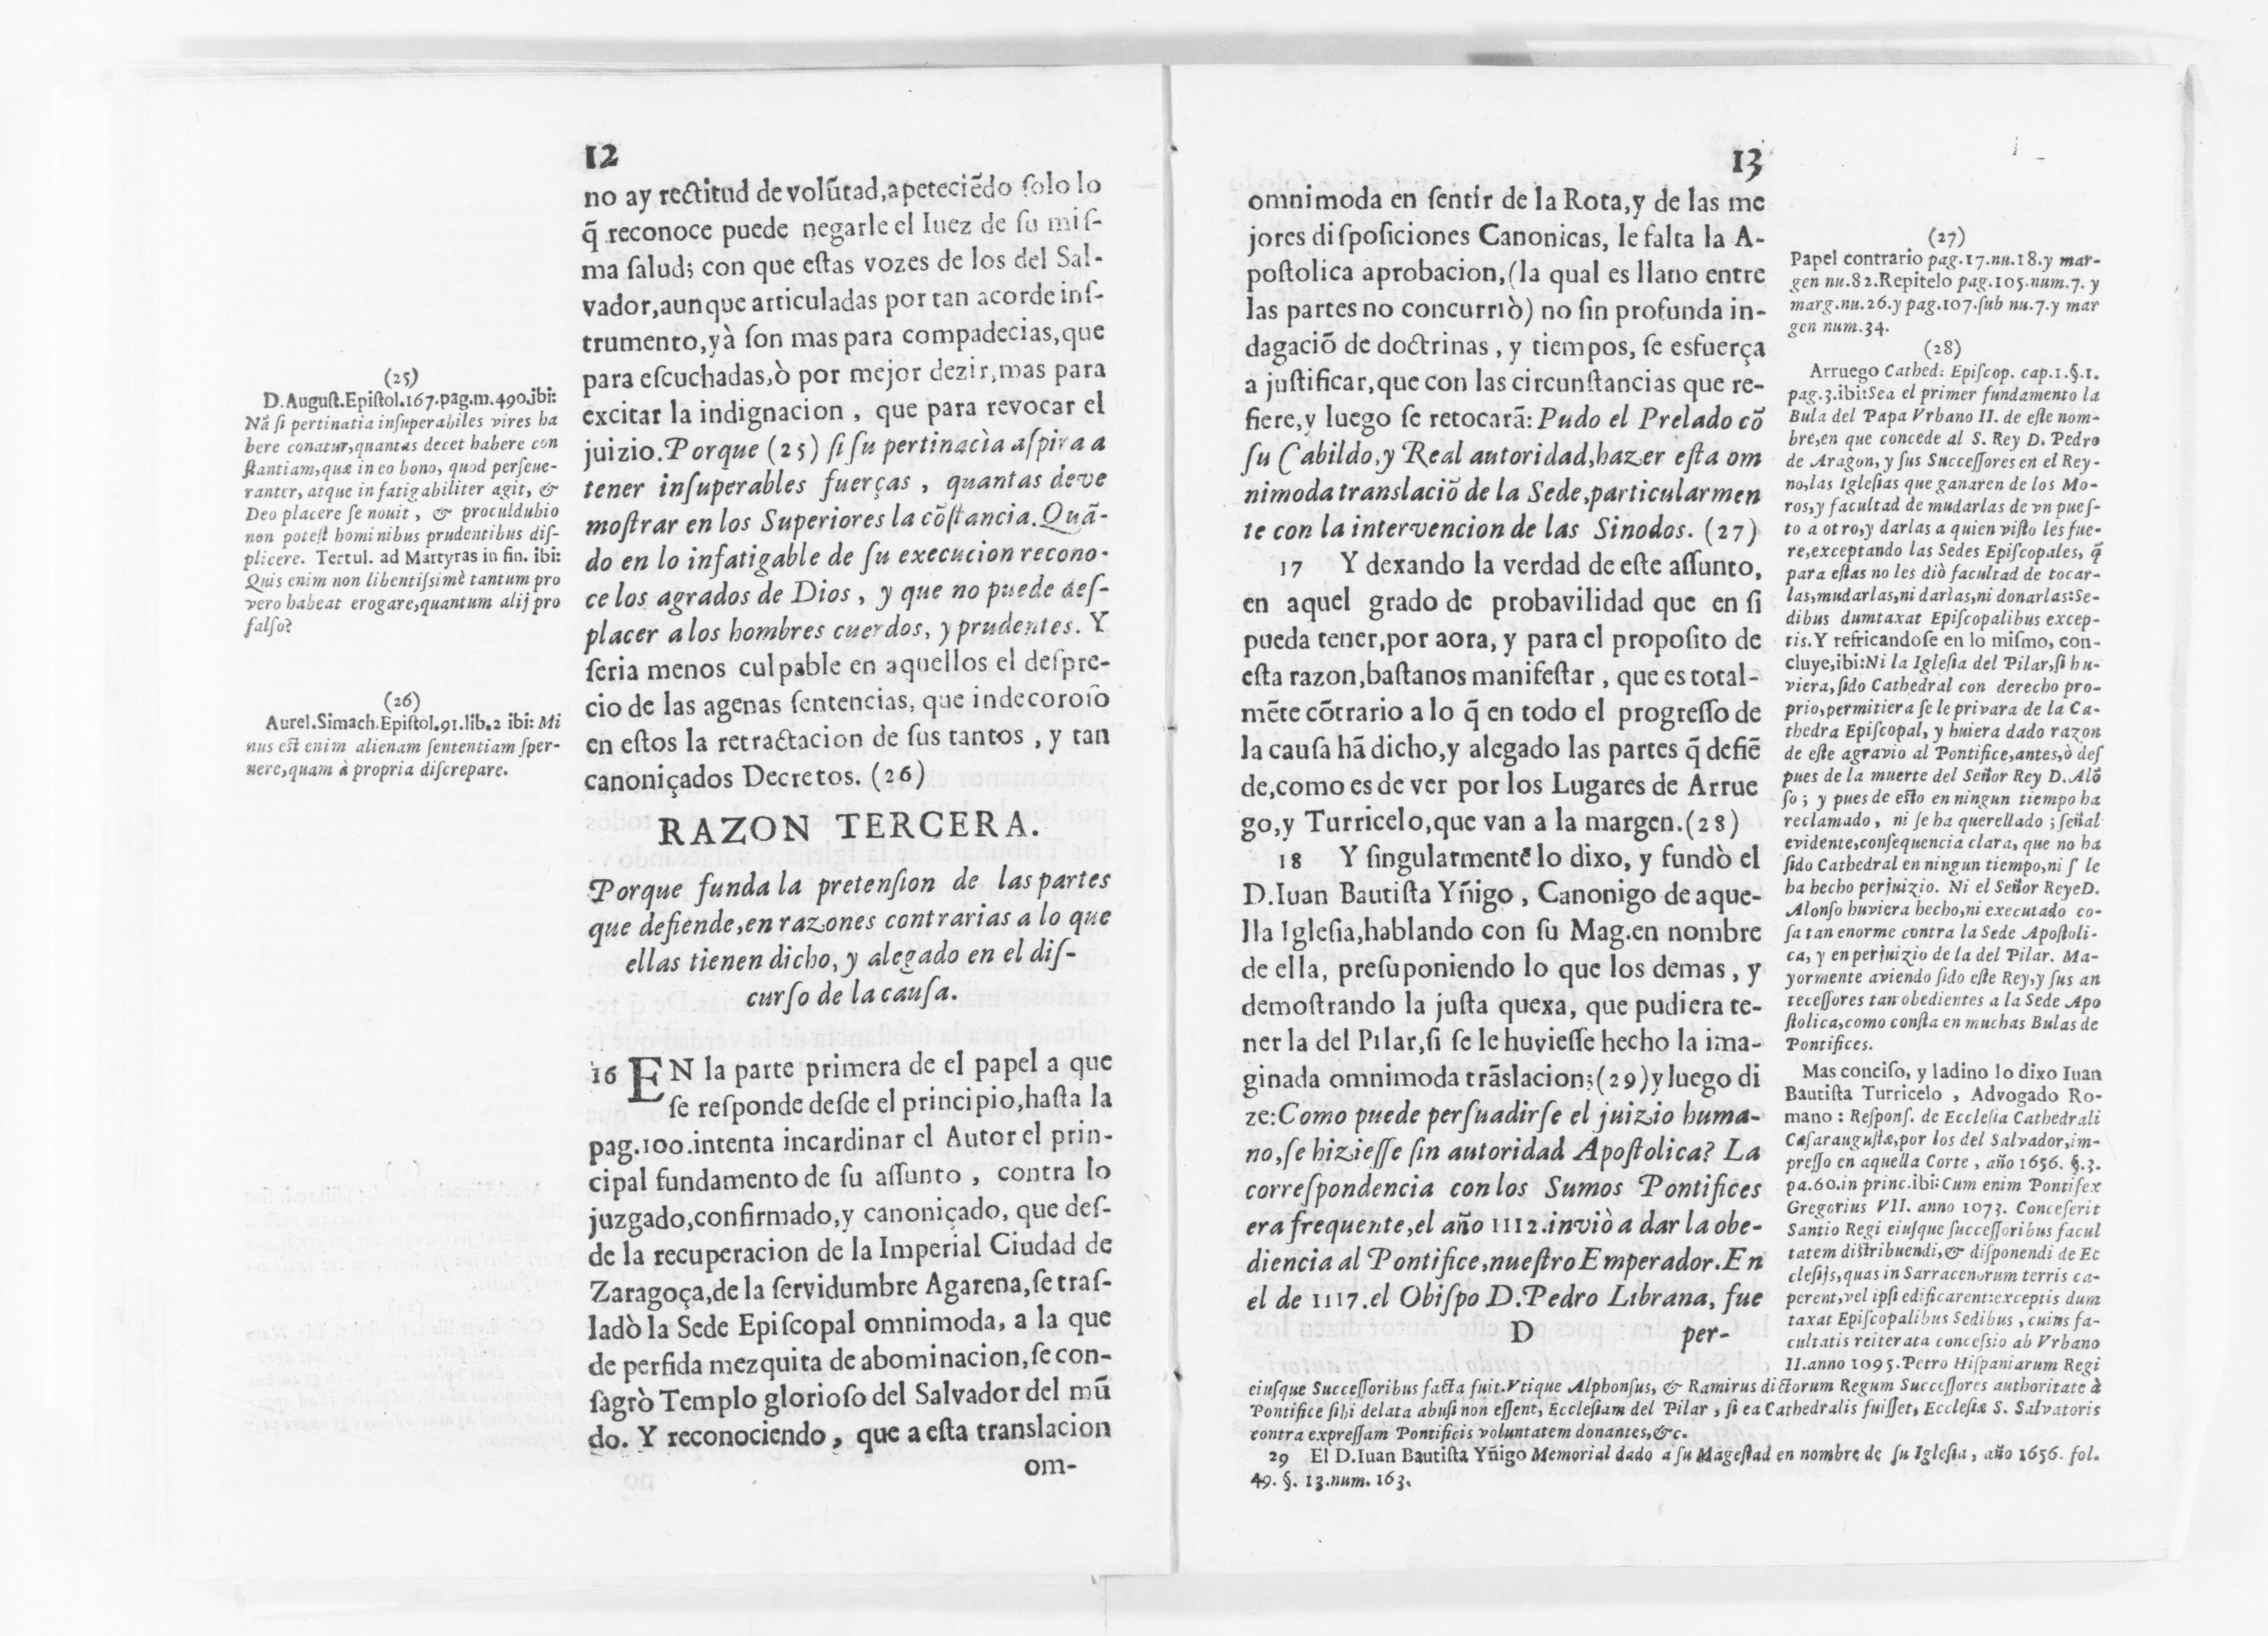 12
no ay rectitud de volũtad,apeteciẽdo ſolo lo
q̃ reconoce puede negarle el Iuez de ſu miſ-
ma ſalud; con que eſtas vozes de los del Sal-
vador,aunque articuladas por tan acorde inſ-
trumento,yà ſon mas para compadecias,que
para eſcuchadas,ò por mejor dezir,mas para
excitar la indignacion , que para revocar el
juizio.Porque (25) ſi ſu pertinacìa aſpira a
tener inſuperables fuerças , quantas deve
moſtrar en los Superiores la cõſtancia.Quã-
do en lo infatigable de ſu execucion recono-
ce los agrados de Dios , y que no puede deſ-
placer a los hombres cuerdos, y prudentes. Y
ſeria menos culpable en aquellos el deſpre-
cio de las agenas ſentencias, que indecoroſo
en eſtos la retractacion de ſus tantos , y tan
canoniçados Decretos. (26)
RAZON TERCERA.
Porque funda la pretenſion de las partes
que defiende,en razones contrarias a lo que
ellas tienen dicho, y alegado en el diſ-
curſo de la cauſa.
16 EN la parte primera de el papel a que
ſe reſponde deſde el principio,haſta la
pag.100.intenta incardinar el Autor el prin-
cipal fundamento de ſu aſſunto , contra lo
juzgado,confirmado,y canoniçado, que deſ-
de la recuperacion de la Imperial Ciudad de
Zaragoça,de la ſervidumbre Agarena,ſe traſ-
ladò la Sede Epiſcopal omnimoda, a la que
de perfida mezquita de abominacion,ſe con-
ſagrò Templo glorioſo del Salvador del mũ
do. Y reconociendo, que a eſta translacion
om-
(25)
D.Auguſt.Epiſtol.167.pag.m.490.ibi:
Nã ſi pertinatia inſuperabiles vires ha
bere conatur,quantas decet habere con
ſtantiam,quæ in eo bono, quod perſeue-
ranter, atque infatigabiliter agit, &
Deo placere ſe nouit , & proculdubio
non poteſt hominibus prudentibus diſ-
plicere. Tertul. ad Martyras in fin. ibi:
Quis enim non libentiſsimè tantum pro
vero habeat erogare,quantum alij pro
falſo?
(26)
Aurel.Simach.Epiſtol.91.lib.2 ibi: Mi
nus eſt enim alienam ſententiam ſper-
nere,quam à propria diſcrepare.
13
omnimoda en ſentir de la Rota,y de las me
jores diſpoſiciones Canonicas, le falta la A-
poſtolica aprobacion,(la qual es llano entre
las partes no concurriò) no ſin profunda in-
dagaciõ de doctrinas , y tiempos, ſe esfuerça
a juſtificar,que con las circunſtancias que re-
fiere,y luego ſe retocarã: Pudo el Prelado cõ
ſu Cabildo,y Real autoridad,hazer eſta om
nimoda translaciõ de la Sede,particularmen
te con la intervencion de las Sinodos. (27)
17 Y dexando la verdad de eſte aſſunto,
en aquel grado de probavilidad que en ſi
pueda tener,por aora, y para el propoſito de
eſta razon,baſtanos manifeſtar , que es total-
mẽte cõtrario a lo q̃ en todo el progreſſo de
la cauſa hã dicho,y alegado las partes q̃ defiẽ
de,como es de ver por los Lugares de Arrue
go,y Turricelo,que van a la margen.(28)
18 Y ſingularmente lo dixo, y fundò el
D.Iuan Bautiſta Yñigo , Canonigo de aque-
lla Igleſia,hablando con ſu Mag.en nombre
de ella, preſuponiendo lo que los demas , y
demoſtrando la juſta quexa, que pudiera te-
ner la del Pilar,ſi ſe le huvieſſe hecho la ima-
ginada omnimoda trãslacion;(29)y luego di
ze:Como puede perſuadirſe el juizio huma-
no,ſe hizieſſe ſin autoridad Apoſtolica? La
correſpondencia con los Sumos Pontifices
era frequente,el año 1112.inviò a dar la obe-
diencia al Pontifice,nueſtro Emperador.En
el de 1117.el Obiſpo D.Pedro Librana, fue
D per-
(27)
Papel contrario pag.17.nu.18.y mar-
gen nu.82.Repitelo pag.105.num.7. y
marg.nu.26.y pag.107.ſub nu.7.y mar
gen num.34.
(28)
Arruego Cathed: Epiſcop. cap.1.§.1.
pag.3.ibi:Sea el primer fundamento la
Bula del Papa Vrbano II. de eſte nom-
bre,en que concede al S. Rey D. Pedro
de Aragon, y ſus Succeſſores en el Rey-
no,las Igleſias que ganaren de los Mo-
ros,y facultad de mudarlas de vn pueſ-
to a otro,y darlas a quien viſto les fue-
re,exceptando las Sedes Epiſcopales, q̃
para eſtas no les diò facultad de tocar-
las,mudarlas,ni darlas,ni donarlas:Se-
dibus dumtaxat Epiſcopalibus excep-
tis.Y refricandoſe en lo miſmo, con-
cluye,ibi:Ni la Igleſia del Pilar,ſi hu-
viera,ſido Cathedral con derecho pro-
prio,permitiera ſe le privara de la Ca-
thedra Epiſcopal, y huiera dado razon
de eſte agravio al Pontifice,antes,ò deſ
pues de la muerte del Señor Rey D.Alõ
ſo ; y pues de eſto en ningun tiempo ha
reclamado , ni ſe ha querellado ; ſeñal
evidente,conſequencia clara, que no ha
ſido Cathedral en ningun tiempo,ni ſ le
ha hecho perjuizio. Ni el Señor ReyeD.
Alonſo huviera hecho,ni executado co-
ſa tan enorme contra la Sede Apoſtoli-
ca, y en perjuizio de la del Pilar. Ma-
yormente aviendo ſido eſte Rey,y ſus an
teceſſores tan obedientes a la Sede Apo
ſtolica,como conſta en muchas Bulas de
Pontifices.
Mas conciſo, y ladino lo dixo Iuan
Bautiſta Turricelo , Advogado Ro-
mano : Reſponſ. de Eccleſia Cathedrali
Cæſarauguſtæ,por los del Salvador,im-
preſſo en aquella Corte , año 1656. §.3.
pa.60.in princ.ibi:Cum enim Pontifex
Gregorius VII. anno 1073. Conceſerit
Santio Regi eiuſque ſucceſſoribus facul
tatem diſtribuendi,& diſponendi de Ec
cleſijs,quas in Sarracenorum terris ca-
perent,vel ipſi edificarent:exceptis dum
taxat Epiſcopalibus Sedibus , cuius fa-
cultatis reiterata conceſsio ab Vrbano
II.anno 1095.Petro Hiſpaniarum Regi
eiuſque Succeſſoribus facta fuit.Vtique Alphonſus, & Ramirus dictorum Regum Succeſſores authoritate à
Pontifice ſibi delata abuſi non eſſent, Eccleſiam del Pilar , ſi ea Cathedralis fuiſſet, Eccleſiæ S. Salvatoris
contra expreſſam Pontificis voluntatem donantes,&c.
29 El D.Iuan Bautiſta Yñigo Memorial dado a ſu Mageſtad en nombre de ſu Igleſia, año 1656. fol.
49. §. 13.num. 163.